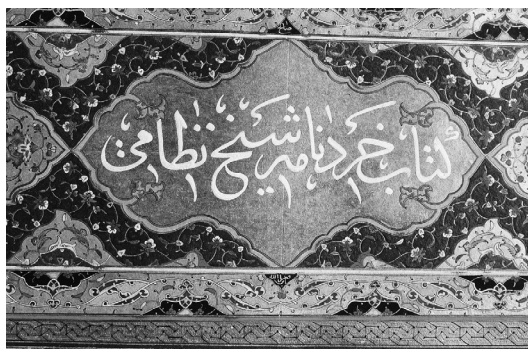 کتاب خردنامه شیخ نظامی